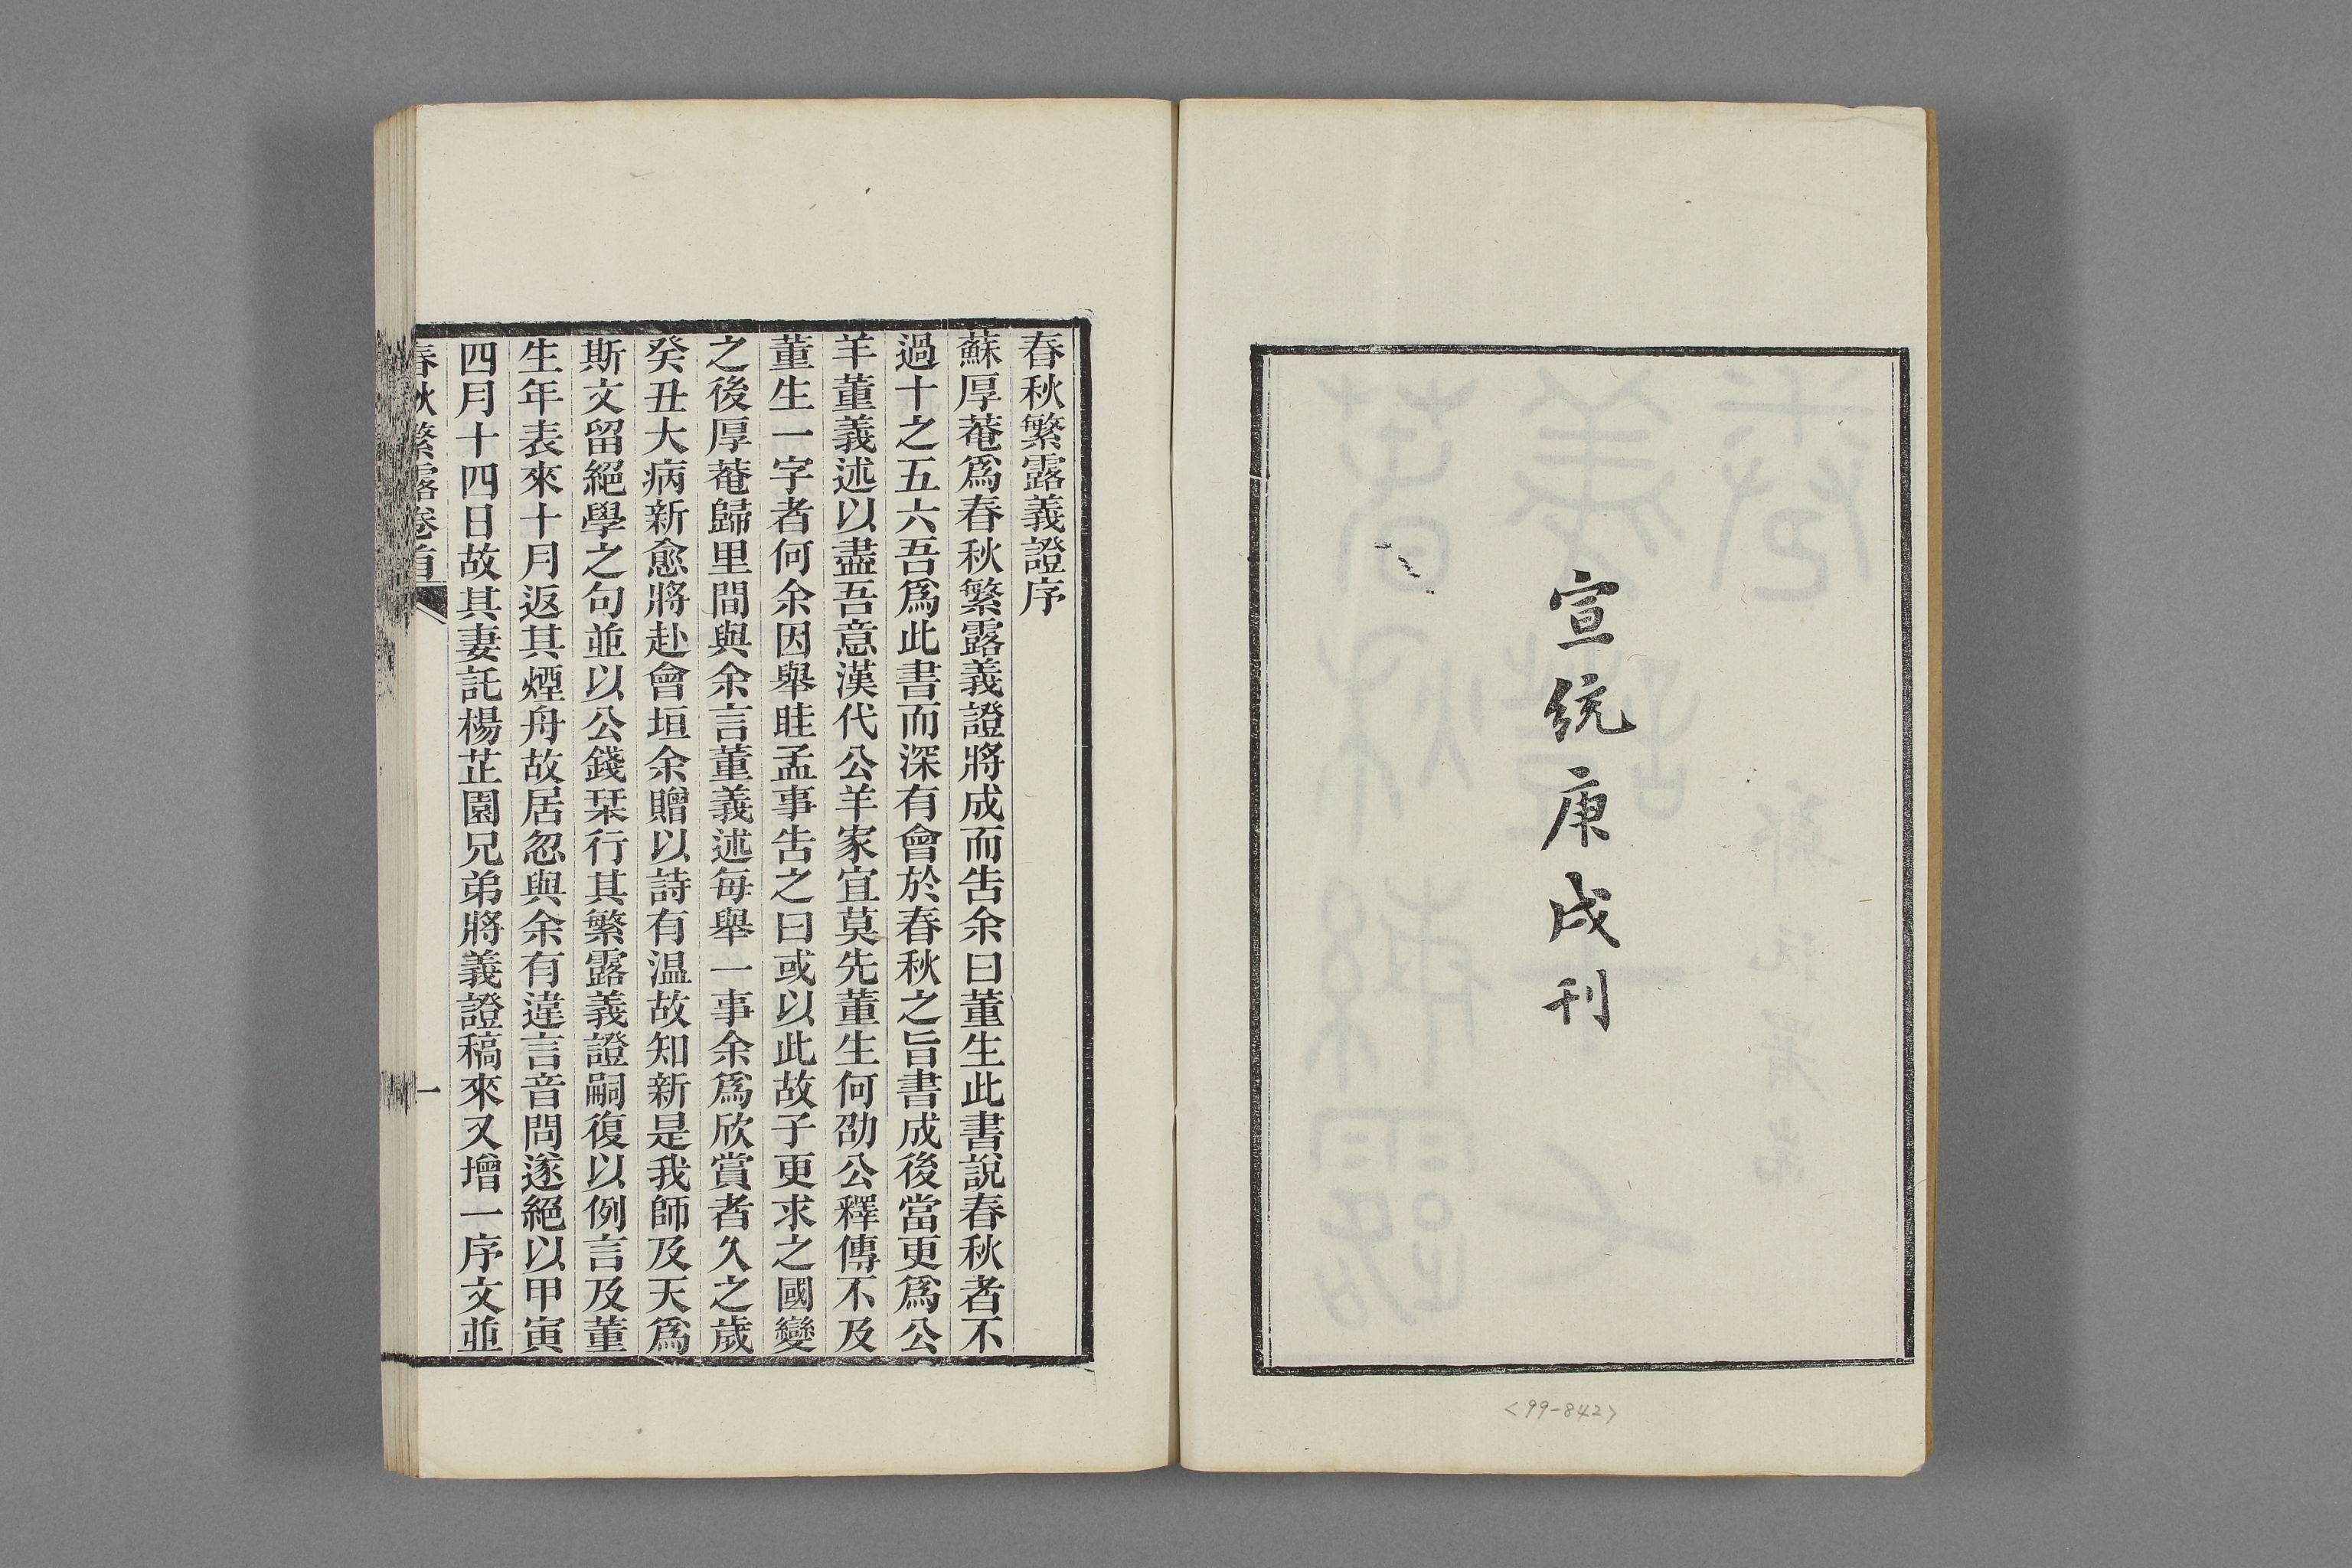 宣統庚戌刊
<99-842>
春秋繁露義證序
蘇厚菴爲春秋繁露義證將成而告余曰董生此書說春秋者不
過十之五六吾爲此書而深有會於春秋之旨書成後當更爲公
羊董義述以盡吾意漢代公羊家宜莫先董生何劭公釋傳不及
董生一字者何余因舉眭孟事告之曰或以此故子更求之國變
之後厚菴歸里間與余言董義述每舉一事余爲欣賞者久之歲
癸丑大病新愈將赴會垣余贈以詩有温故知新是我師及天爲
斯文留絕學之句並以公錢栞行其繁露義證嗣復以例言及董
生年表來十月返其煙舟故居忽與余有違言音問遂絕以甲寅
四月十四日故其妻託楊芷園兄弟將義證稿來又增一序文並
春秋繁露卷首
一